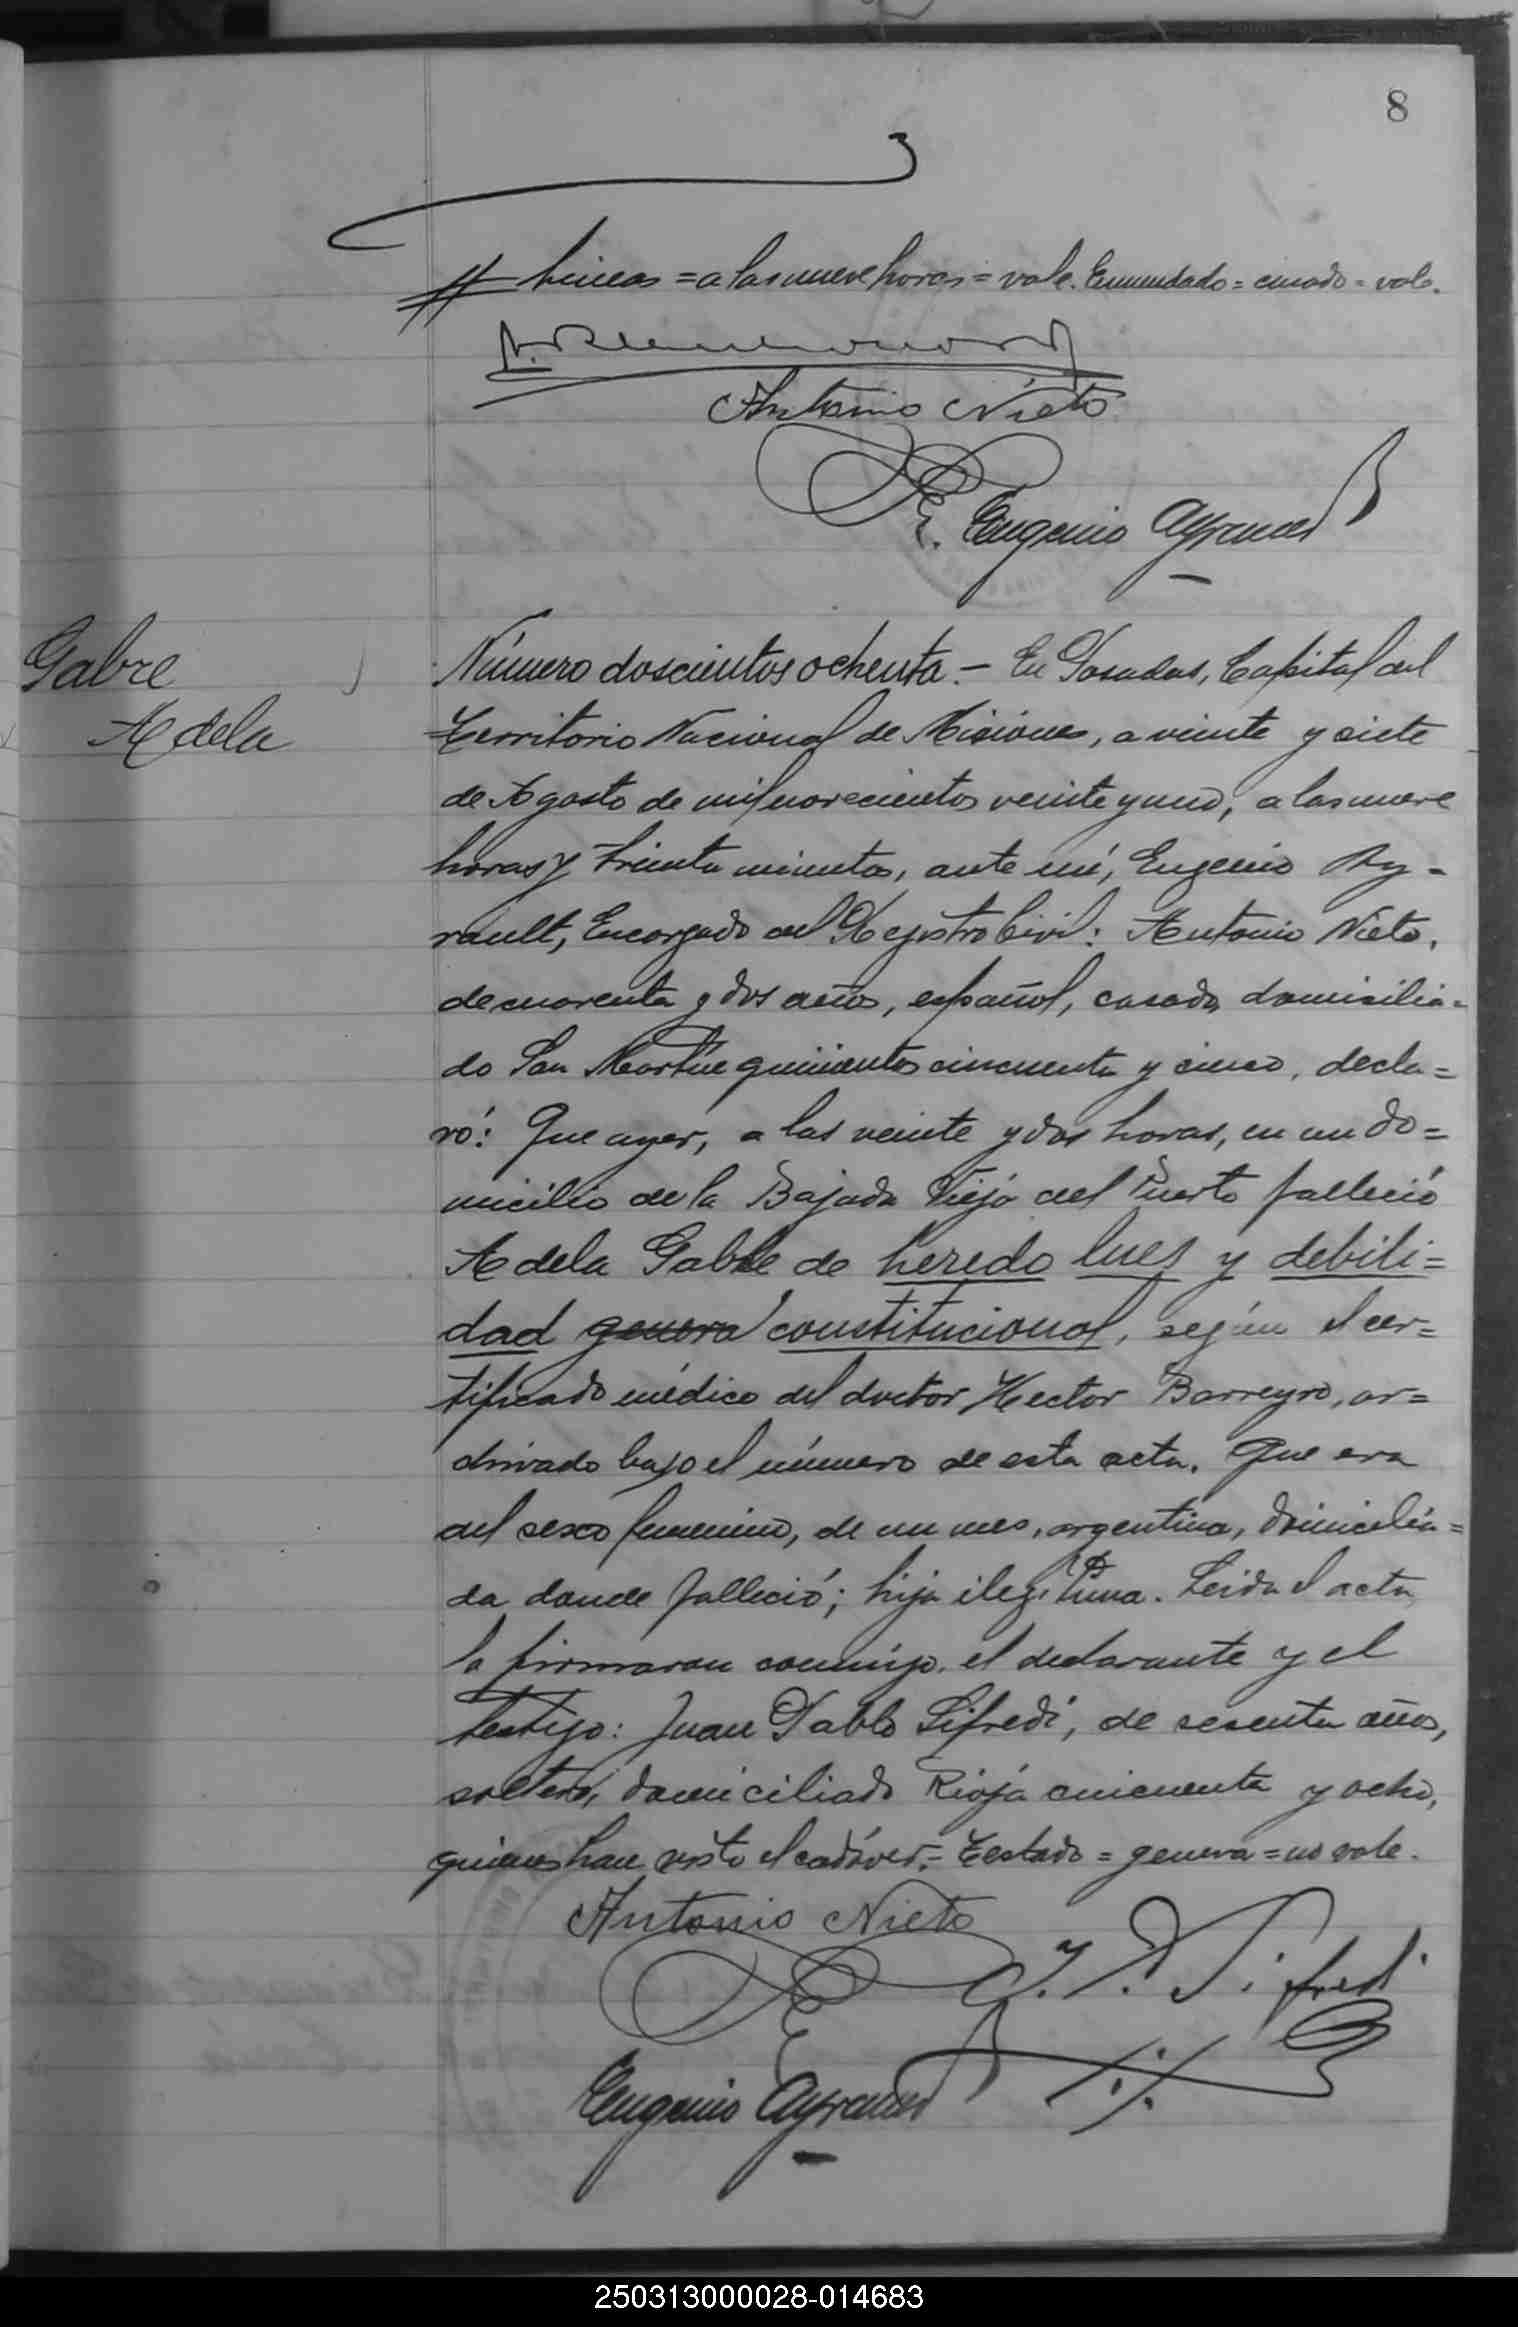 8
líneas = a las nueve horas = vale. Enmendado = cinado = vale.
Antonio Nieto
E. Eugenio Ayrault
Gabre
Adela
Número doscientos ochenta.- En Posadas, Capital del
Territorio Nacional de Misiones, a veinte y siete
de Agosto de mil novecientos veinte y uno, a las nueve
horas y treinta minutos, ante mí, Eugenio Ay=
rault, Encargado del Registro Civil: Antonio Nieto,
de cuarenta y dos años, español, casado, domicilia=
do San Martín quinientos cincuenta y cinco, decla=
ró: Que ayer, a las veinte y dos horas, en un do=
micilio de la Bajada Vieja del Puerto falleció
Adela Gabre de heredo lues y debili=
dad genera constitucional, según el cer=
tificado médico del doctor Hector Barreyro, ar=
chivado bajo el número de esta acta. Que era
del sexo femenino, de un mes, argentina, domicilia=
da donde falleció; hija ilegítima. Leida el acta
la firmaron conmigo, el declarante y el
testigo: Juan Pablo Sifredi, de sesenta años,
soltero, domiciliado Rioja cincuenta y ocho,
quienes han visto el cadáver.= Testado = genera = no vale.
Antonio Nieto
J. P. Sifredi
Eugenio Ayrault
250313000028-014683